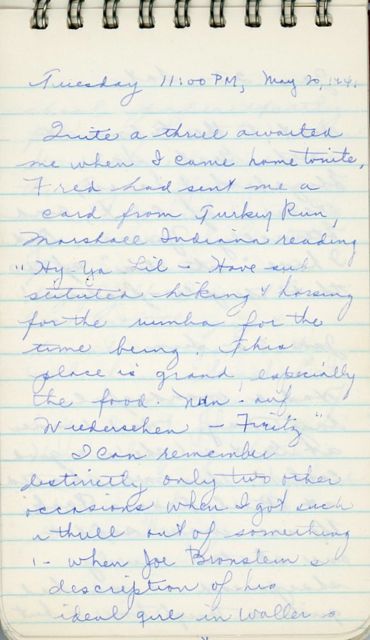 Tuesday 11:00 PM, May 20, '41.
Quite a thrill awaited
me when I came home tonite,
Fred had sent me a
card from Turkey Run,
Marshall Indiana reading
"Hy-Ya Lil - Have sub
stituted hiking & horsing
for the rumba for the
time being. This
place is grand, especially
the food. Nun - auf
Wiedersehen - Fritz"
I can remember
distinctly only two other
occasions when I got such
a thrill out of something
1 - when Joe Bronstein's
description of his
ideal girl in Waller's